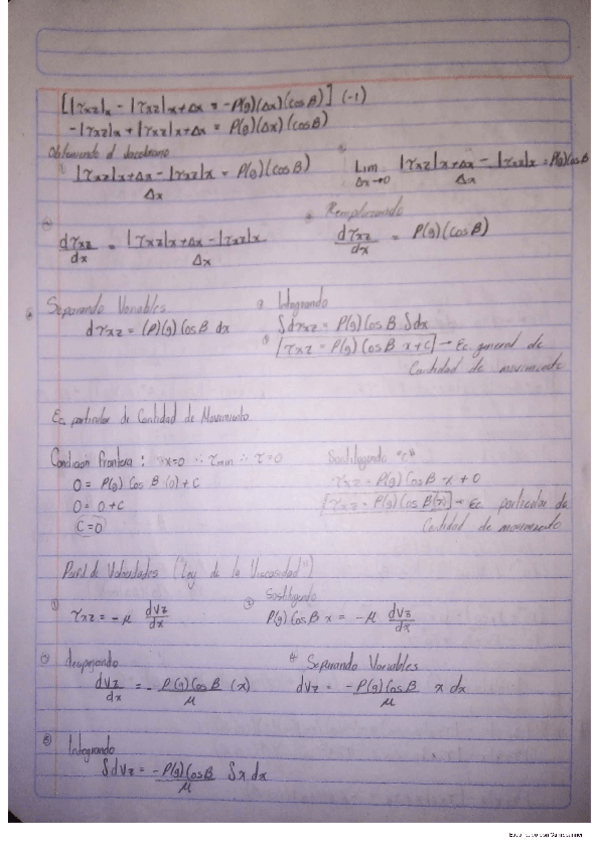 [|τxz|x - |τxz|x+Δx = -P(g)(Δx)(cosB)] (-1)
-|τxz|x + |τxz|x+Δx = P(g)(Δx)(cosB)
Obteniendo el
|τxz|x+Δx - |τxz|x = P(g)(cosB)
Δx
Lim |τxz|x+Δx - |τxz|x = P(g)cosB
Δx→0 Δx
dτxz = |τxz|x+Δx - |τxz|x
dx Δx
Remplazando
dτxz = P(g)(cosB)
dx
Separando Variables
dτxz = (P)(g) cosB dx
Integrando
∫dτxz = P(g) CosB ∫dx
[τxz = P(g) CosB x+C] → Ec general de
Cantidad de movimiento
Ec. particular de Cantidad de Movimiento
Condición Frontera: x=0 ∴ τmin ∴ τ=0
0 = P(g) Cos B (0) + C
0 = 0+C
C=0
Sustituyendo "C"
τxz = P(g) CosB x + 0
[τxz = P(g) Cos B(x)] → Ec. particular de
Cantidad de movimiento
Perfil de Velocidades ("Ley de la Viscosidad")
① τxz = -μ dVz
dx
② Sustituyendo
P(g) CosB x = -μ dVz
dx
③ despejando
dVz = - P(g)CosB (x)
dx μ
④ Separando Variables
dVz = -P(g)CosB x dx
μ
⑤ Integrando
∫dVz = -P(g)CosB ∫x dx
μ